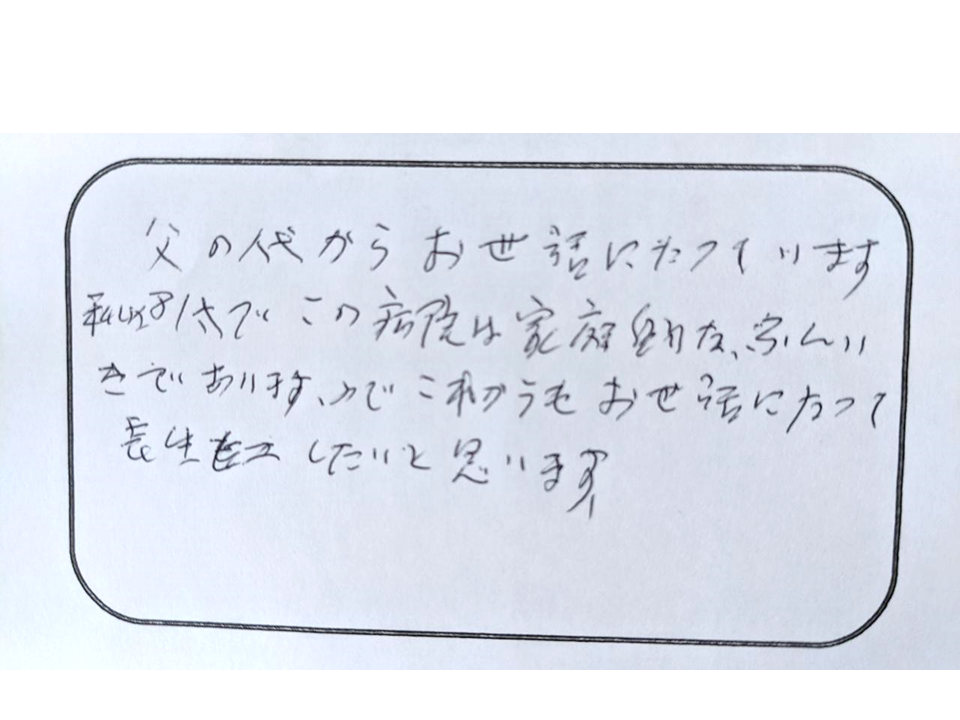 父の代からお世話になっています
私は78才でこの病院は家庭的な、ふんい
きであります、のでこれからもお世話になって
長生きをしたいと思います